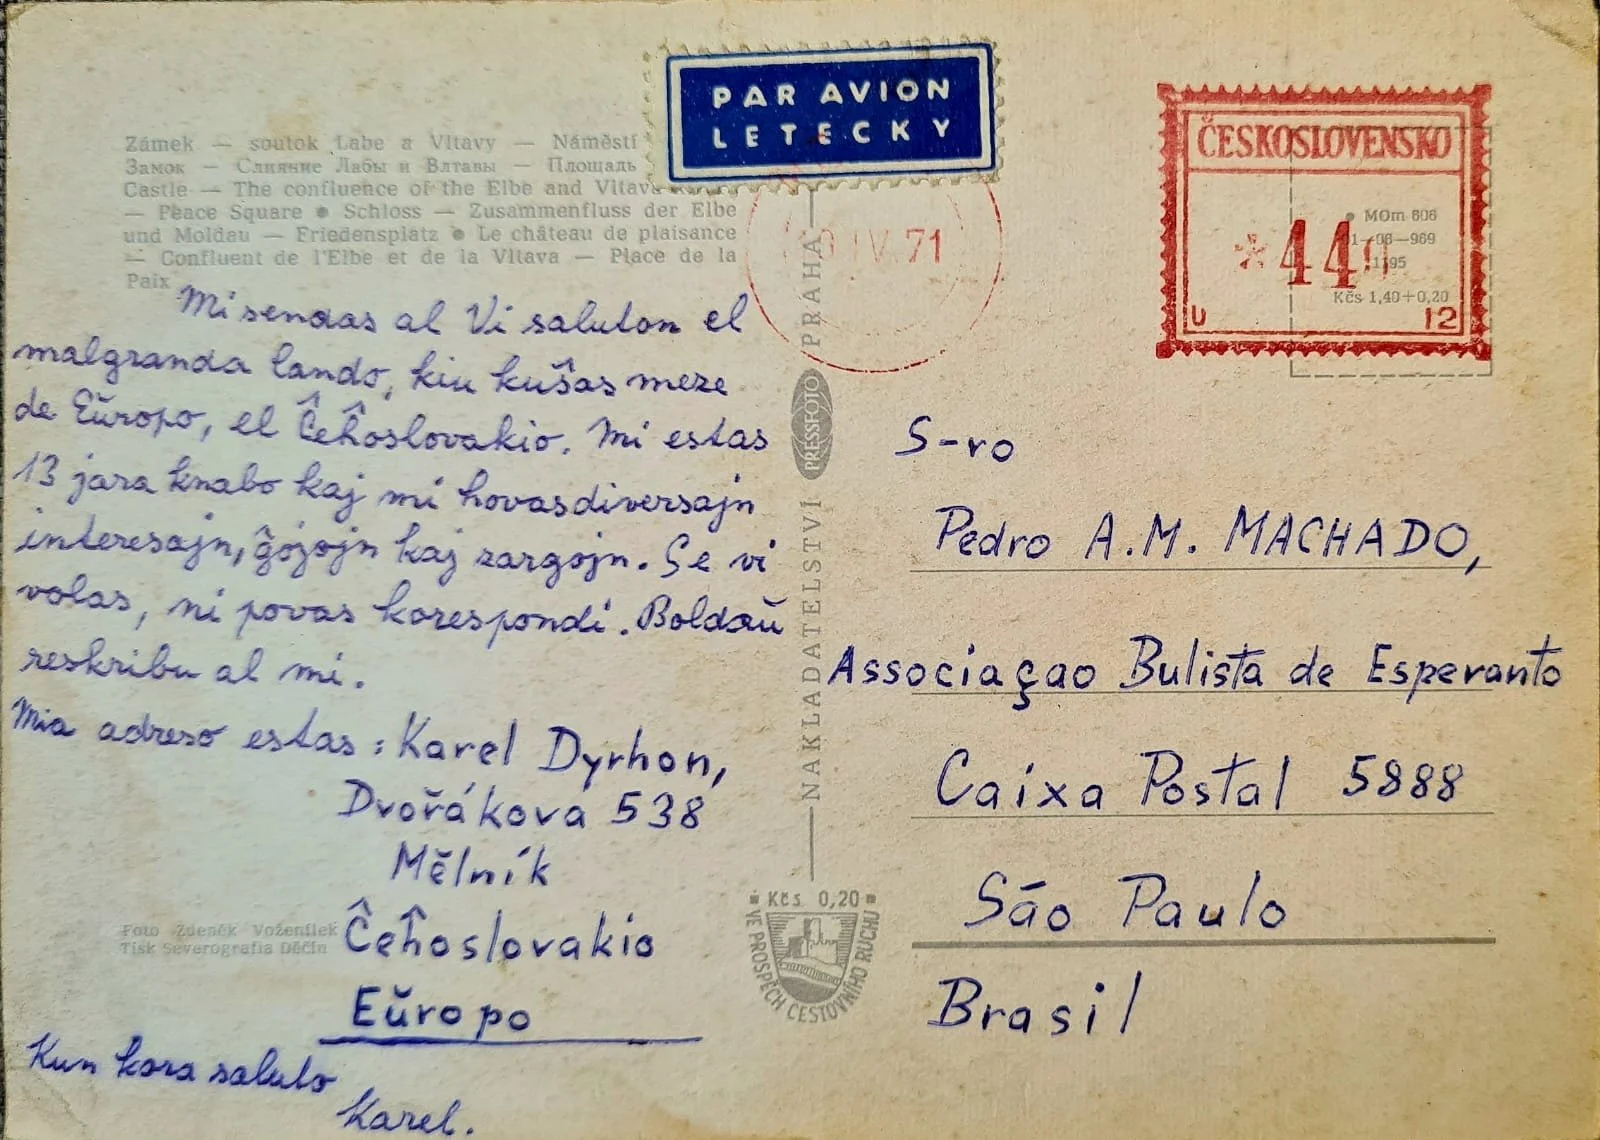 Zámek — soutok Labe a Vltavy — Náměstí
Замок — Слияние Лабы и Влтавы — Площадь
Castle — The confluence of the Elbe and Vltava
— Peace Square ● Schloss — Zusammenfluss der Elbe
und Moldau — Friedensplatz ● Le château de plaisance
— Confluent de l'Elbe et de la Vltava — Place de la
Paix
PAR AVION
LETECKY
PRAHA
IV.71
ČESKOSLOVENSKO
*440
U 12
MOm 606
01—06—969
1195
Kčs 1,40+0,20
Mi sendas al Vi saluton el
malgranda lando, kiu kuŝas meze
de Eŭropo, el Ĉeĥoslovakio. Mi estas
13 jara knabo kaj mi hovas diversajn
interesajn, ĝojojn kaj zargojn. Se vi
volas, ni povas korespondi. Boldaŭ
reskribu al mi.
Mia adreso estas: Karel Dyrhon,
Dvořákova 538
Mělník
Ĉeĥoslovakio
Eŭropo
Kun kora saluto
Karel.
Foto Zdeněk Voženílek
Tisk Severografia Děčín
NAKLADATELSTVÍ PRESSFOTO PRAHA
Kčs 0,20
VE PROSPĚCH CESTOVNÍHO RUCHU
S-ro
Pedro A.M. MACHADO,
Associaçao Bulista de Esperanto
Caixa Postal 5888
São Paulo
Brasil